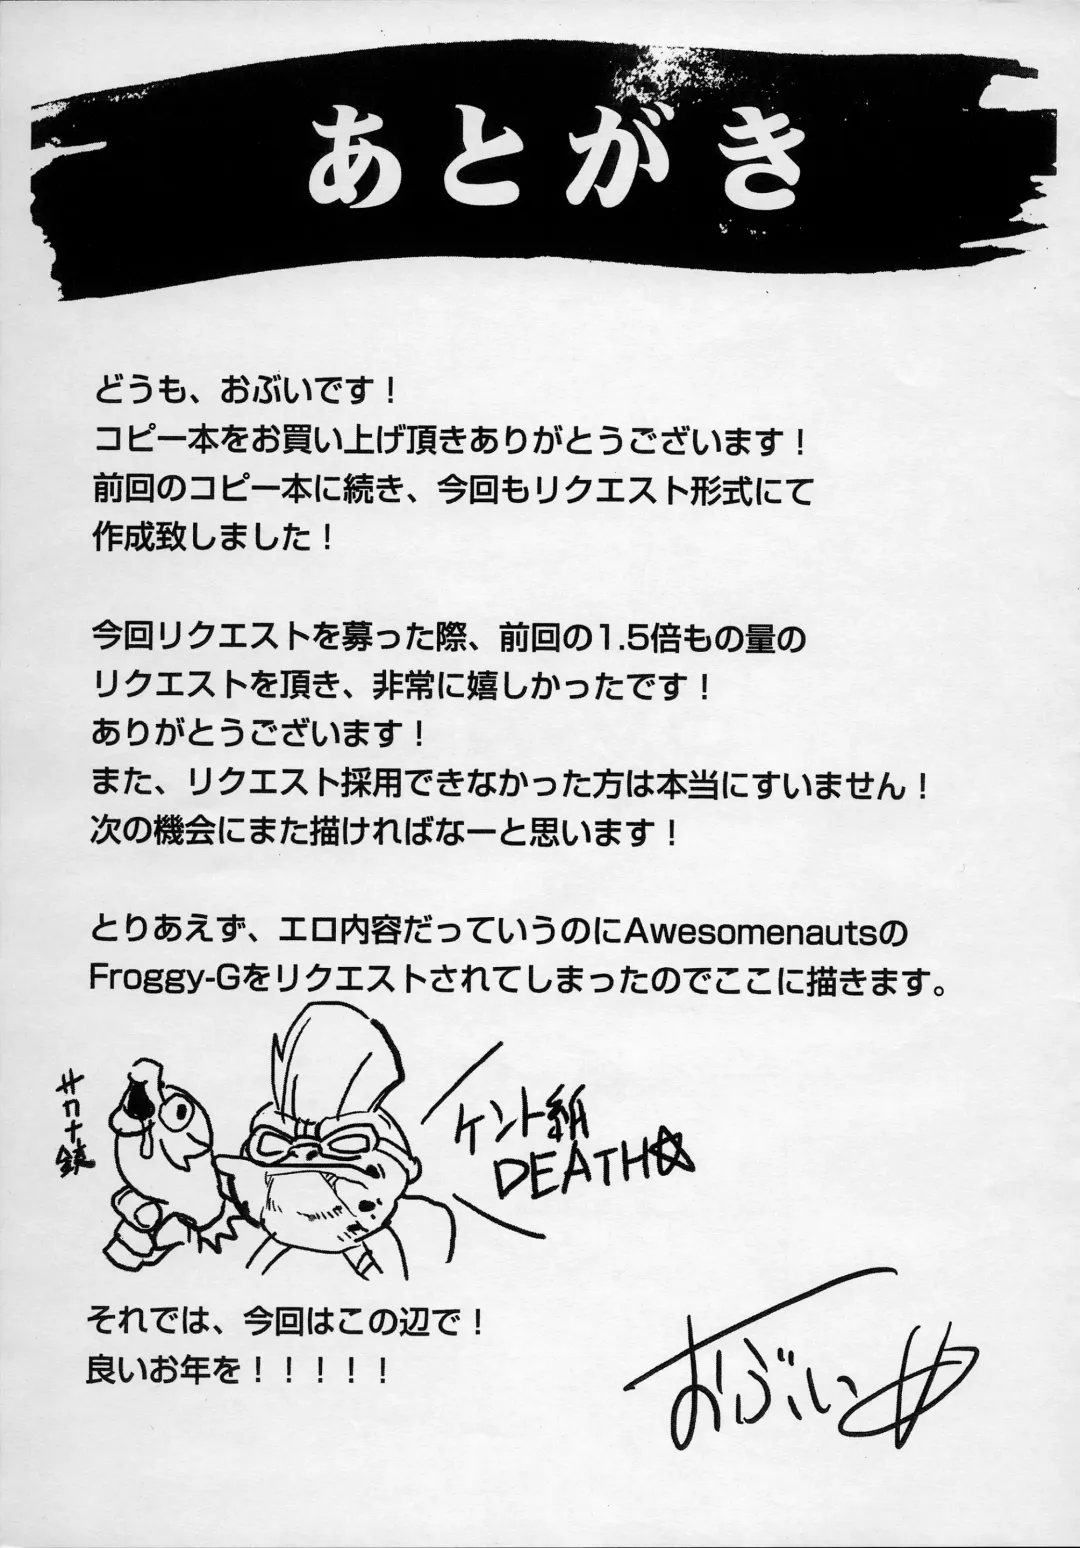 あとがき
どうも、おぶいです！
コピー本をお買い上げ頂きありがとうございます！
前回のコピー本に続き、今回もリクエスト形式にて
作成致しました！
今回リクエストを募った際、前回の1.5倍もの量の
リクエストを頂き、非常に嬉しかったです！
ありがとうございます！
また、リクエスト採用できなかった方は本当にすいません！
次の機会にまた描ければなーと思います！
とりあえず、エロ内容だっていうのにAwesomenautsの
Froggy-Gをリクエストされてしまったのでここに描きます。
サカナ銃
ケント紙
DEATH☆
それでは、今回はこの辺で！
良いお年を！！！！！
おぶい